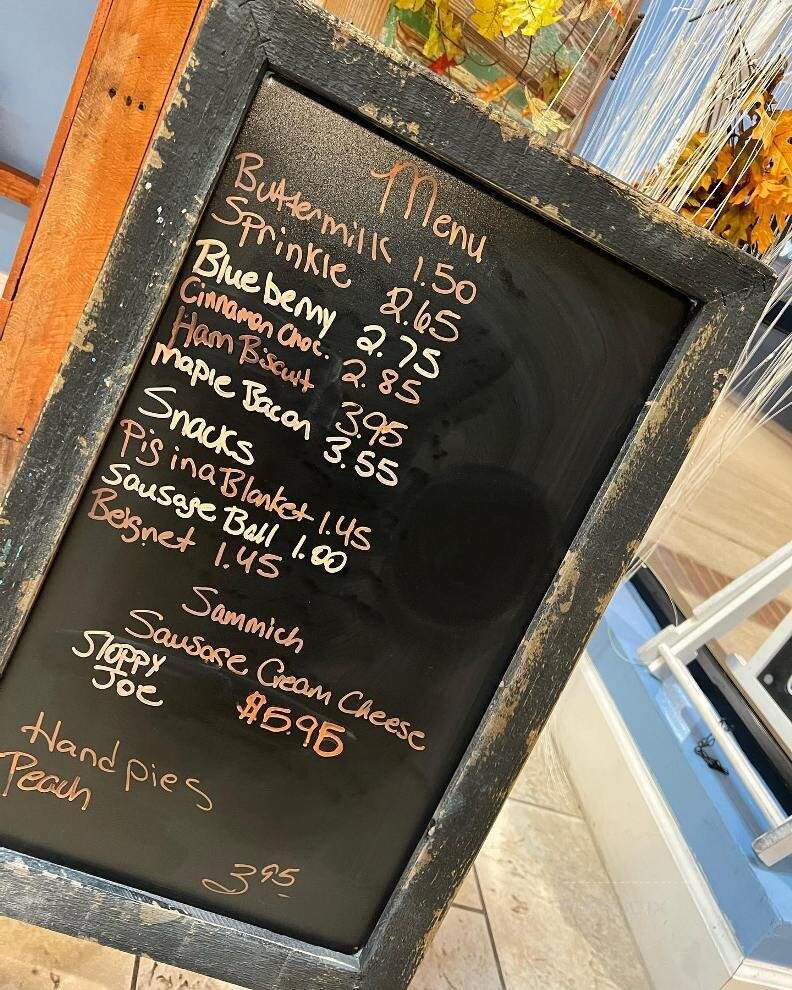 Menu
Buttermilk 1.50
Sprinkle 2.65
Blueberry 2.75
Cinnamon Choc. 2.85
Ham Biscuit 3.95
Maple Bacon 3.55
Snacks
Pig in a Blanket 1.45
Sausage Ball 1.00
Beignet 1.45
Sammich
Sausage Cream Cheese
Sloppy
Joe
$5.95
Hand pies
Peach
3.95